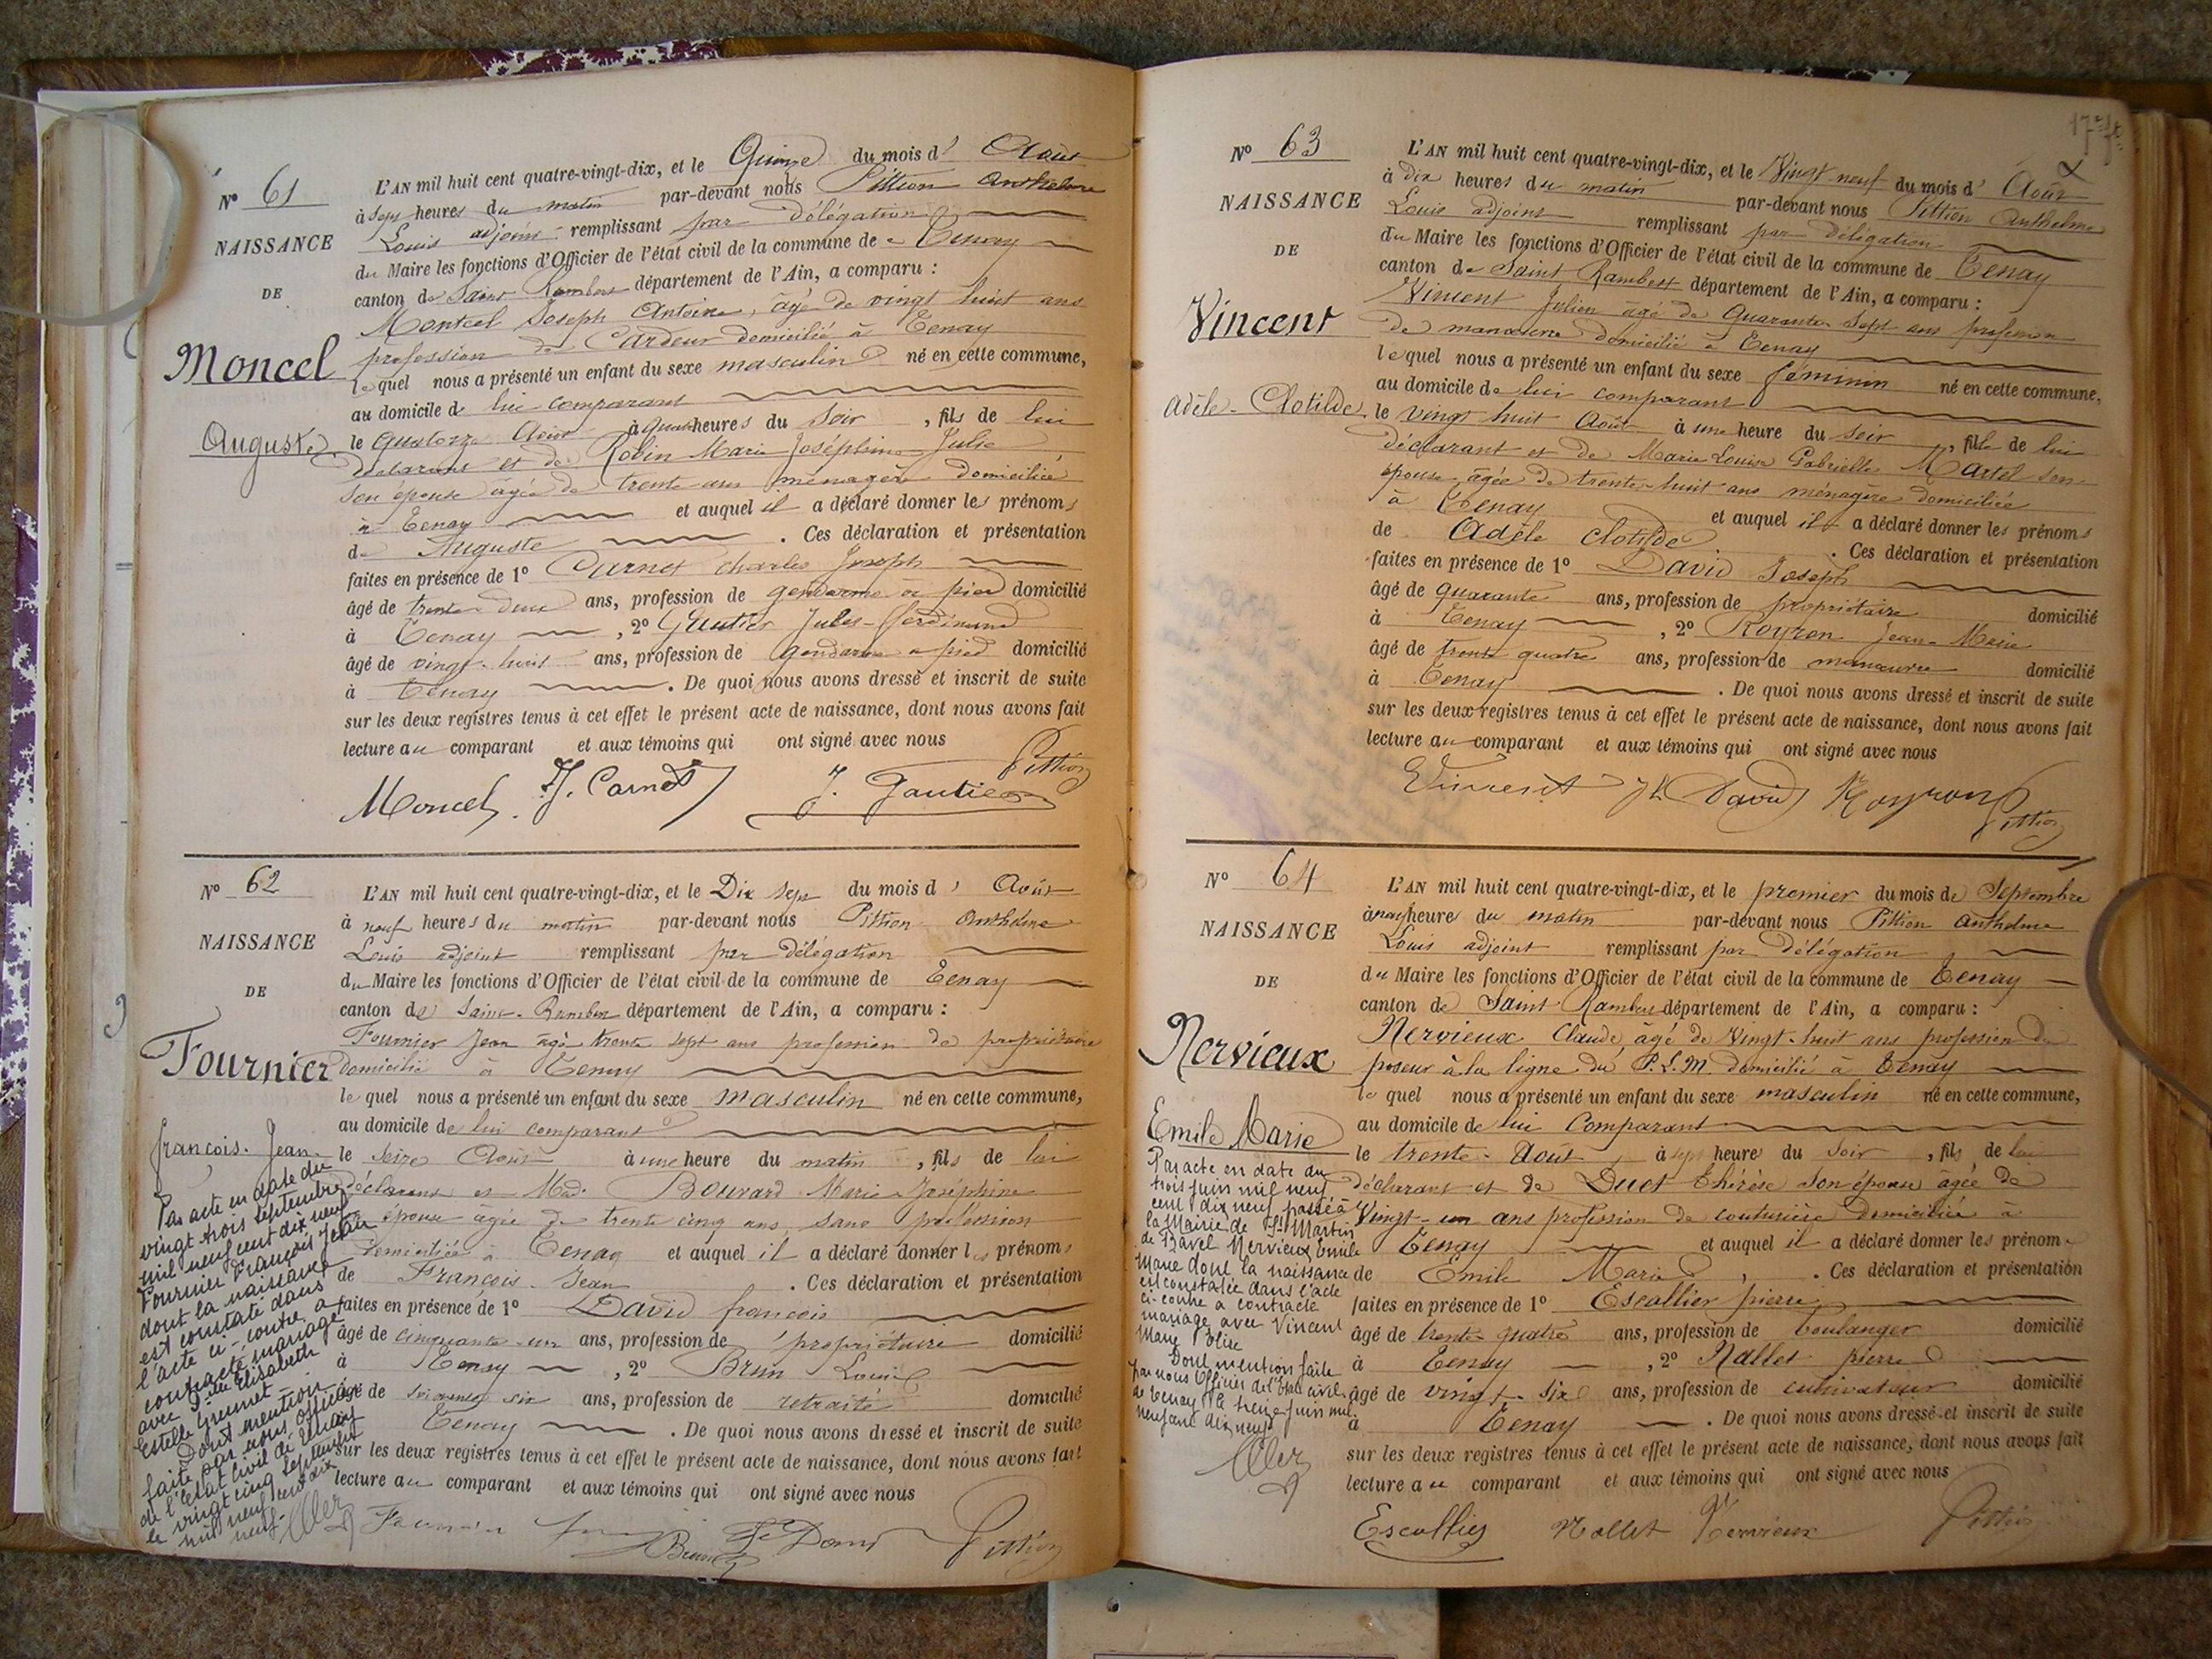 Nº 61
NAISSANCE
DE
Moncel
Auguste
L'AN mil huit cent quatre-vingt-dix, et le Quinze du mois d' Août
à sept heures du matin par-devant nous Pittion Anthelme
Louis adjoint remplissant par délégation
du Maire les fonctions d'Officier de l'état civil de la commune de Tenay
canton de Saint Rambert département de l'Ain, a comparu :
Joseph Antoine, âgé de vingt huit ans
profession de Cardeur domicilié à Tenay
lequel nous a présenté un enfant du sexe masculin né en cette commune,
au domicile de lui comparant
le quatorze Août à quatre heures du soir, fils de lui
déclarant et de Robin Marie Joséphine Julie
son épouse âgée de trente ans ménagère domiciliée
à Tenay et auquel il a déclaré donner les prénoms
de Auguste. Ces déclaration et présentation
faites en présence de 1º Carnet Charles Joseph
âgé de trente deux ans, profession de gendarme à pied domicilié
à Tenay, 2º Gautier Jules-Ferdinand
âgé de vingt-huit ans, profession de gendarme à pied domicilié
à Tenay. De quoi nous avons dressé et inscrit de suite
sur les deux registres tenus à cet effet le présent acte de naissance, dont nous avons fait
lecture au comparant et aux témoins qui ont signé avec nous
Pittion
Moncel J. Carnet J. Gautier
Nº 62
NAISSANCE
DE
Fournier
François-Jean
L'AN mil huit cent quatre-vingt-dix, et le Dix sept du mois d' Août
à neuf heures du matin par-devant nous Pittion Anthelme
Louis adjoint remplissant par délégation
du Maire les fonctions d'Officier de l'état civil de la commune de Tenay
canton de Saint-Rambert département de l'Ain, a comparu :
Fournier Jean âgé trente sept ans profession de propriétaire
domicilié à Tenay
lequel nous a présenté un enfant du sexe masculin né en cette commune,
au domicile de lui comparant
le seize Août à une heure du matin, fils de lui
déclarant et Bouvard Marie Joséphine
épouse âgée de trente cinq ans sans profession
domiciliée à Tenay et auquel il a déclaré donner les prénoms
de François-Jean. Ces déclaration et présentation
faites en présence de 1º David françois
âgé de cinquante-un ans, profession de propriétaire domicilié
à Tenay, 2º Brun Louis
âgé de soixante six ans, profession de retraité domicilié
Tenay. De quoi nous avons dressé et inscrit de suite
sur les deux registres tenus à cet effet le présent acte de naissance, dont nous avons fait
lecture au comparant et aux témoins qui ont signé avec nous
Brun Pittion
Par acte en date du
vingt trois septembre
mil neuf cent dix neuf
Fournier François Jean
dont la naissance
est constatée dans
l'acte ci-contre a
contracté mariage
avec Dlle Elisabeth
Estelle Grumet
Dont mention
faite par nous officier
de l'Etat civil de Tenay
le vingt cinq septembre
mil neuf cent dix
neuf
Nº 63
NAISSANCE
DE
Vincent
Adèle-Clotilde
L'AN mil huit cent quatre-vingt-dix, et le Vingt neuf du mois d' Août
à dix heures du matin par-devant nous Pittion Anthelme
Louis adjoint remplissant par délégation
du Maire les fonctions d'Officier de l'état civil de la commune de Tenay
canton de Saint Rambert département de l'Ain, a comparu :
Vincent Julien âgé de Quarante-sept ans profession
de manœuvre domicilié à Tenay
lequel nous a présenté un enfant du sexe féminin né en cette commune,
au domicile de lui comparant
le vingt huit Août à une heure du soir, fille de lui
déclarant et de Marie Louise Gabrielle Martel son
épouse âgée de trente-huit ans ménagère domiciliée
à Tenay et auquel il a déclaré donner les prénoms
de Adèle Clotilde. Ces déclaration et présentation
faites en présence de 1º David Joseph
âgé de quarante ans, profession de propriétaire domicilié
à Tenay, 2º Royron Jean-Marie
âgé de trente quatre ans, profession de manœuvre domicilié
à Tenay. De quoi nous avons dressé et inscrit de suite
sur les deux registres tenus à cet effet le présent acte de naissance, dont nous avons fait
lecture au comparant et aux témoins qui ont signé avec nous
Vincent David Royron Pittion
Nº 64
NAISSANCE
DE
Nervieux
Emile Marie
L'AN mil huit cent quatre-vingt-dix, et le premier du mois de Septembre
à neuf heures du matin par-devant nous Pittion Anthelme
Louis adjoint remplissant par Délégation
du Maire les fonctions d'Officier de l'état civil de la commune de Tenay
canton de Saint Rambert département de l'Ain, a comparu :
Nervieux Claude âgé de Vingt-huit ans profession de
poseur à la ligne du P.L.M. domicilié à Tenay
lequel nous a présenté un enfant du sexe masculin né en cette commune,
au domicile de lui Comparant
le trente Août à sept heures du soir, fils de lui
déclarant et de Duet Thérèse son épouse âgée de
Vingt-un ans profession de couturière domiciliée à
Tenay et auquel il a déclaré donner les prénoms
de Emile Marie. Ces déclaration et présentation
faites en présence de 1º Escallier pierre
âgé de trente quatre ans, profession de boulanger domicilié
à Tenay, 2º Nallet pierre
âgé de vingt-six ans, profession de cultivateur domicilié
à Tenay. De quoi nous avons dressé et inscrit de suite
sur les deux registres tenus à cet effet le présent acte de naissance, dont nous avons fait
lecture au comparant et aux témoins qui ont signé avec nous
Escallier Nallet Nervieux Pittion
Par acte en date du
trois juin mil neuf
cent dix neuf passé à
la Mairie de St Martin
de Bavel Nervieux Emile
Marie dont la naissance
est constatée dans l'acte
ci-contre a contracté
mariage avec Vincent
Marie
Dont mention faite
par nous Officier de l'Etat civil
de Tenay le treize juin mil
neuf cent dix neuf